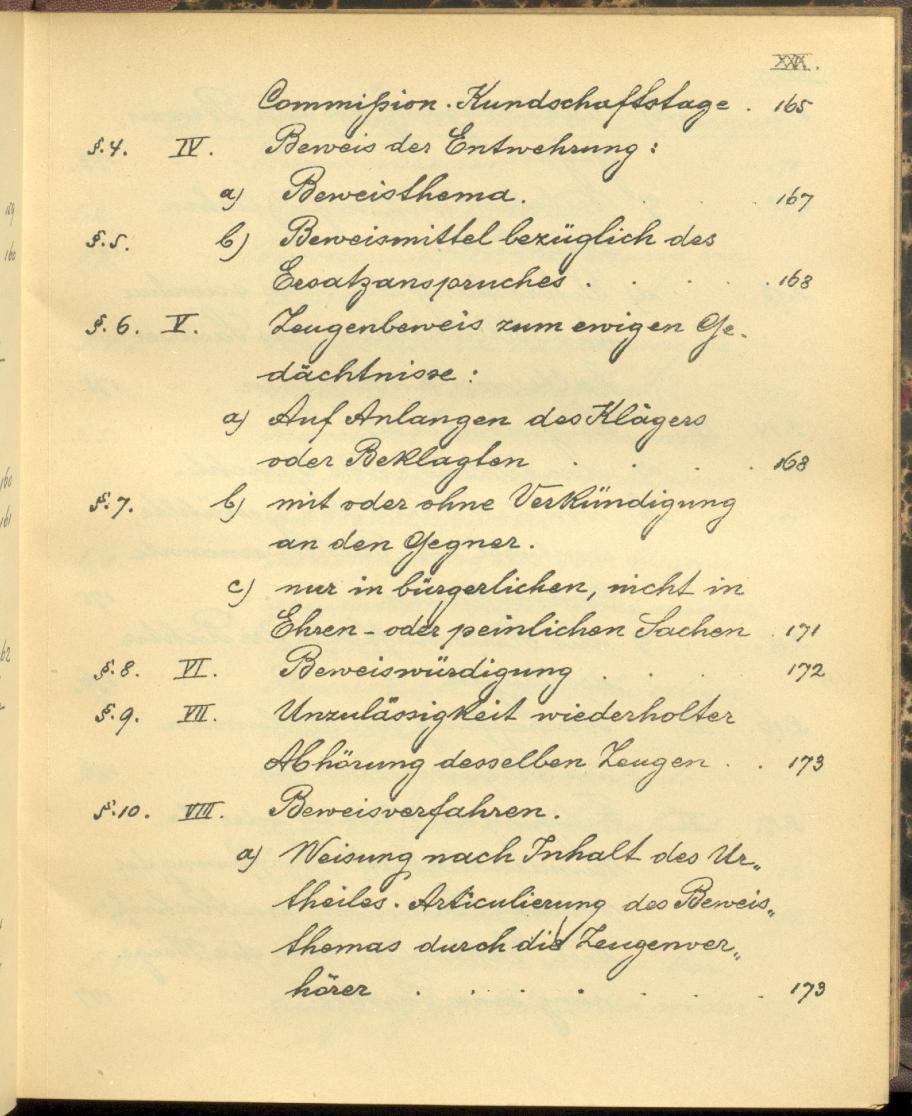 XXX.
Commission. Kundschaftstage . 165
§. 4. IV. Beweis der Entwehrung:
a) Beweisthema. . 167
§. 5. b) Beweismittel bezüglich des
Ersatzanspruches . . . . . 168
§. 6. V. Zeugenbeweis zum ewigen Ge-
dächtnisse:
a) Auf Anlangen des Klägers
oder Beklagten . . . . 168
§. 7. b) mit oder ohne Verkündigung
an den Gegner.
c) nur in bürgerlichen, nicht in
Ehren- oder peinlichen Sachen . 171
§. 8. VI. Beweiswürdigung . . . 172
§. 9. VII. Unzulässigkeit wiederholter
Abhörung desselben Zeugen . . 173
§. 10. VIII. Beweisverfahren.
a) Weisung nach Inhalt des Ur„
theiles. Articulierung des Beweis„
themas durch die Zeugenver„
hörer . . . . . . . 173
159
160
160
161
62